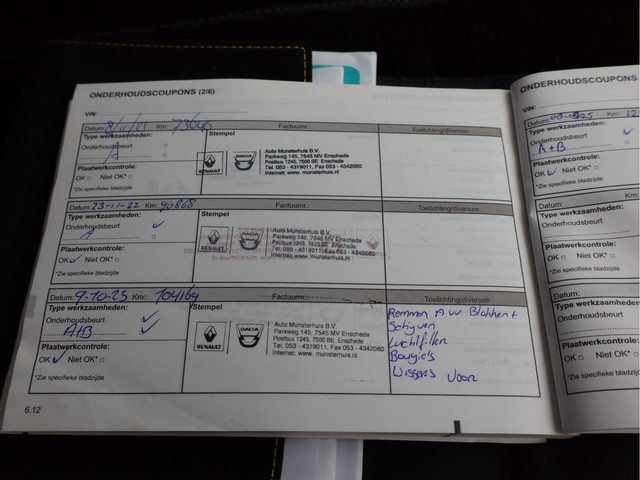 ONDERHOUDSCOUPONS (2/6)
VIN:
Datum: 8/11/21 Km:
Factuurnr.:
Toelichting/diversen
Type werkzaamheden:
Onderhoudsbeurt
A
Plaatwerkcontrole:
OK □ Niet OK* □
*Zie specifieke bladzijde
Stempel
RENAULT
DACIA
Auto Munsterhuis B.V.
Parkweg 145, 7545 MV Enschede
Postbus 1245, 7500 BE Enschede
Tel. 053 - 4319011, Fax 053 - 4342080
Internet: www.munsterhuis.nl
Datum: 23-11-22 Km: 90868
Factuurnr.:
Toelichting/diversen
Type werkzaamheden:
Onderhoudsbeurt
A
Plaatwerkcontrole:
OK Niet OK* □
*Zie specifieke bladzijde
Stempel
RENAULT
DACIA
Auto Munsterhuis B.V.
Parkweg 145, 7545 MV Enschede
Postbus 1245, 7500 BE Enschede
Tel. 053 - 4319011, Fax 053 - 4342080
Internet: www.munsterhuis.nl
Datum: 9-10-23 Km: 104164
Factuurnr.:
Toelichting/diversen
Type werkzaamheden:
Onderhoudsbeurt
A+B
Plaatwerkcontrole:
OK Niet OK* □
*Zie specifieke bladzijde
Stempel
RENAULT
DACIA
Auto Munsterhuis B.V.
Parkweg 145, 7545 MV Enschede
Postbus 1245, 7500 BE Enschede
Tel. 053 - 4319011, Fax 053 - 4342080
Internet: www.munsterhuis.nl
Remmen A vv Blokken +
Schijven
Luchtfilter
Bougie's
Wissers voor
6.12
ONDERHOUDSCOUPONS
VIN:
Datum: Km: 12
Type werkzaamheden:
Onderhoudsbeurt
A+B
Plaatwerkcontrole:
OK Niet OK* □
*Zie specifieke bladzijde
Datum:
Type werkzaamheden:
Onderhoudsbeurt
Plaatwerkcontrole:
OK □ Niet OK* □
*Zie specifieke bladzijde
Datum:
Type werkzaamheden:
Onderhoudsbeurt
Plaatwerkcontrole:
OK □ Niet OK* □
*Zie specifieke bladzijde